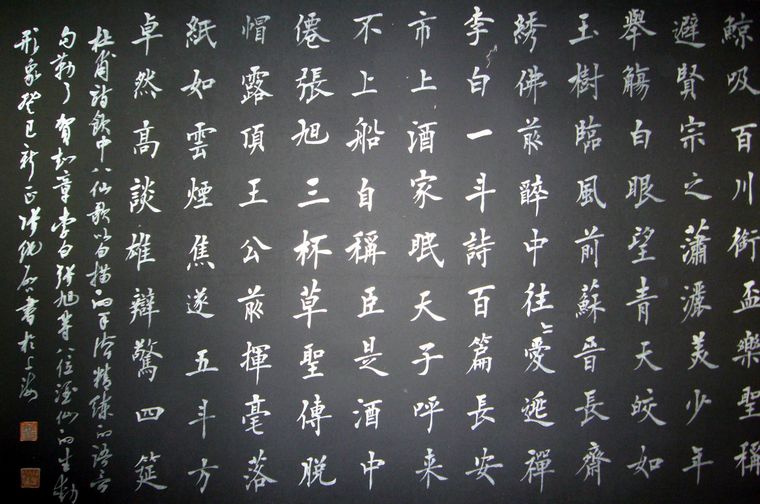 鯨吸百川銜盃樂聖稱
避賢宗之瀟灑美少年
舉觴白眼望青天皎如
玉樹臨風前蘇晉長齋
綉佛前醉中往々愛逃禪
李白一斗詩百篇長安
市上酒家眠天子呼来
不上船自稱臣是酒中
僊張旭三杯草聖傳脱
帽露頂王公前揮毫落
紙如雲煙焦遂五斗方
卓然高談雄辯驚四筵
杜甫詩飲中八仙歌以白描的手法精練的語言
勾勒了賀知章李白張旭等八位酒仙的生動
形象癸巳新正書於上海